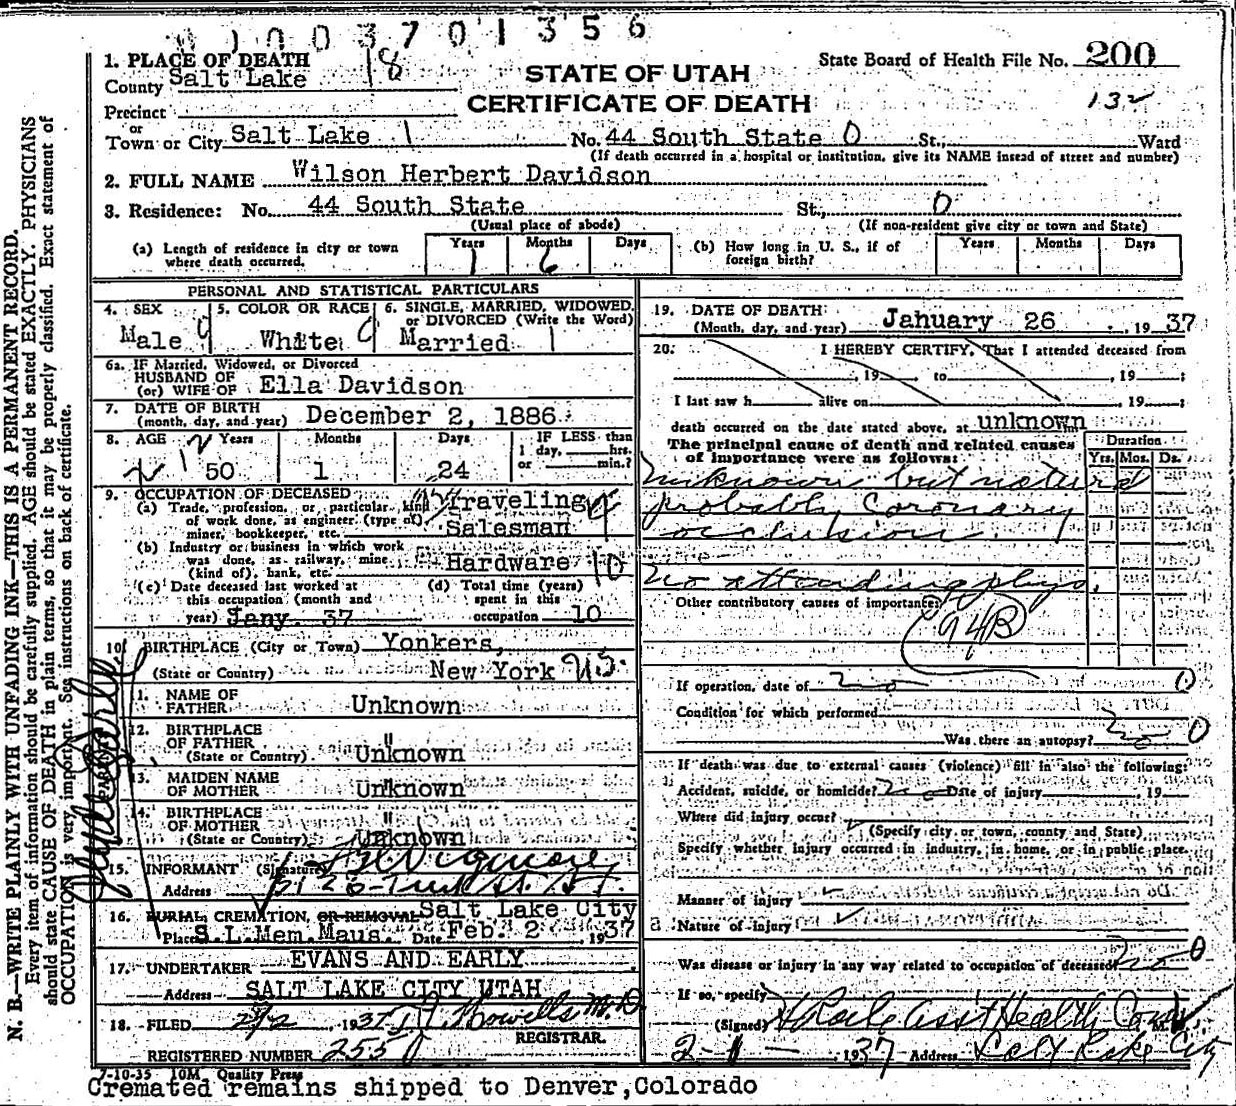 W 1 0 0 3 7 0 1 3 5 6
1. PLACE OF DEATH
County Salt Lake 18
STATE OF UTAH
CERTIFICATE OF DEATH
State Board of Health File No. 200
132
Precinct
or
Town or City Salt Lake 1 No. 44 South State 0 St., Ward
(If death occurred in a hospital or institution, give its NAME insead of street and number)
2. FULL NAME Wilson Herbert Davidson
3. Residence: No. 44 South State St., 0
(Usual place of abode) (If non-resident give city or town and State)
(a) Length of residence in city or town where death occurred. Years 1 Months 6 Days
(b) How long in U. S., if of foreign birth? Years Months Days
PERSONAL AND STATISTICAL PARTICULARS
4. SEX Male
5. COLOR OR RACE White
6. SINGLE, MARRIED, WIDOWED, or DIVORCED (Write the Word) Married 1
6a. IF Married, Widowed, or Divorced
HUSBAND OF
(or) WIFE OF Ella Davidson
7. DATE OF BIRTH
(month, day, and year) December 2, 1886
8. AGE Years 50 Months 1 Days 24 IF LESS than 1 day, hrs. or min.?
9. OCCUPATION OF DECEASED
(a) Trade, profession, or particular kind of work done, as engineer (type of) miner, bookkeeper, etc. Traveling Salesman
(b) Industry or business in which work was done, as railway, mine (kind of), bank, etc. Hardware 10
(c) Date deceased last worked at this occupation (month and year) Jany. 37
(d) Total time (years) spent in this occupation 10
10. BIRTHPLACE (City or Town) Yonkers,
(State or Country) New York U.S.
11. NAME OF FATHER Unknown
12. BIRTHPLACE OF FATHER (State or Country) " Unknown
13. MAIDEN NAME OF MOTHER Unknown
14. BIRTHPLACE OF MOTHER (State or Country) " Unknown
15. INFORMANT (Signature)
Address
16. BURIAL, CREMATION, OR REMOVAL Salt Lake City
Place S.L.Mem.Maus. Date Feb. 2 1937
17. UNDERTAKER EVANS AND EARLY
Address SALT LAKE CITY UTAH
18. FILED 2/2, 1937 Howells M.D
REGISTRAR.
REGISTERED NUMBER 2550
7-10-35 10M Quality Press
19. DATE OF DEATH:
(Month, day, and year) January 26, 1937
20. I HEREBY CERTIFY, That I attended deceased from
, 19 to , 19 ;
I last saw h alive on , 19 ;
death occurred on the date stated above, at unknown
The principal cause of death and related causes of importance were as follows:
Duration
Yrs. Mos. Ds.
Unknown but natural
probably Coronary
occlusion.
No attending phys.
Other contributory causes of importance:
94B
If operation, date of no 0
Condition for which performed
Was there an autopsy? no 0
If death was due to external causes (violence) fill in also the following:
Accident, suicide, or homicide? no Date of injury , 19
Where did injury occur?
(Specify city or town, county and State)
Specify whether injury occurred in industry, in home, or in public place.
Manner of injury
Nature of injury
Was disease or injury in any way related to occupation of deceased? no 0
If so, specify
(Signed) Asst Health Com. M.D.
2-1- 1937 Address Salt Lake City
Cremated remains shipped to Denver,Colorado
N. B.—WRITE PLAINLY WITH UNFADING INK—THIS IS A PERMANENT RECORD.
Every item of information should be carefully supplied. AGE should be stated EXACTLY. PHYSICIANS
should state CAUSE OF DEATH in plain terms, so that it may be properly classified. Exact statement of
OCCUPATION is very important. See instructions on back of certificate.